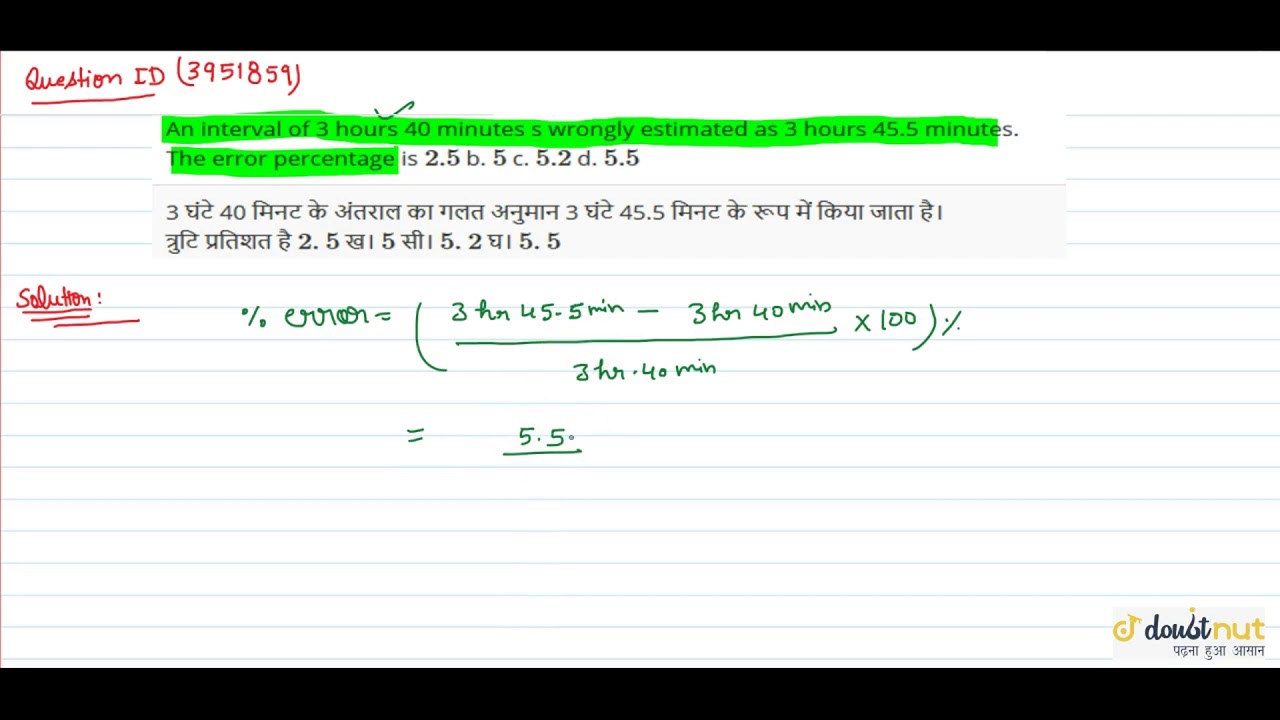 Question ID (3951859)
An interval of 3 hours 40 minutes s wrongly estimated as 3 hours 45.5 minutes.
The error percentage is 2.5 b. 5 c. 5.2 d. 5.5
3 घंटे 40 मिनट के अंतराल का गलत अनुमान 3 घंटे 45.5 मिनट के रूप में किया जाता है।
त्रुटि प्रतिशत है 2. 5 ख। 5 सी। 5. 2 घ। 5. 5
Solution:
% error = ( 3 hr 45.5 min - 3 hr 40 min × 100 ) %
3 hr. 40 min
= 5.5
doubtnut
पढ़ना हुआ आसान